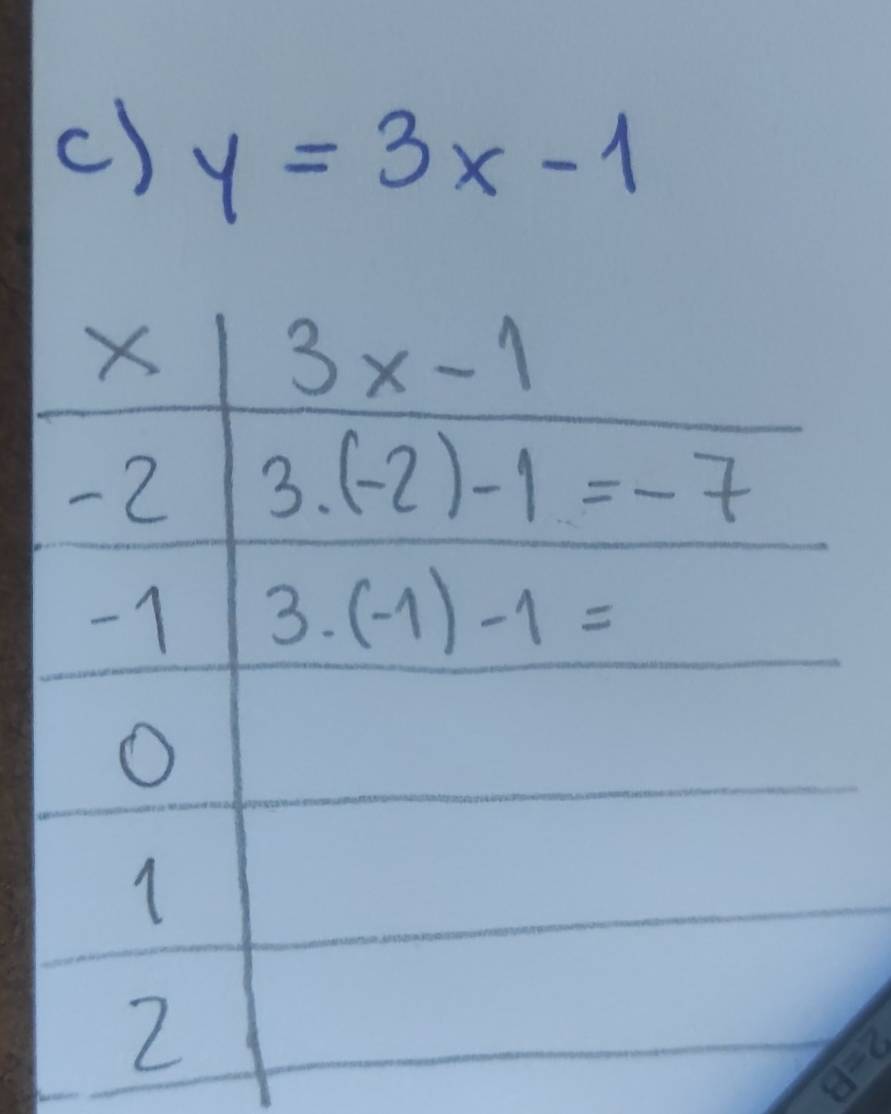 c) y = 3x - 1
x | 3x - 1
-2 | 3.(-2) - 1 = -7
-1 | 3.(-1) - 1 =
0
1
2
2=B